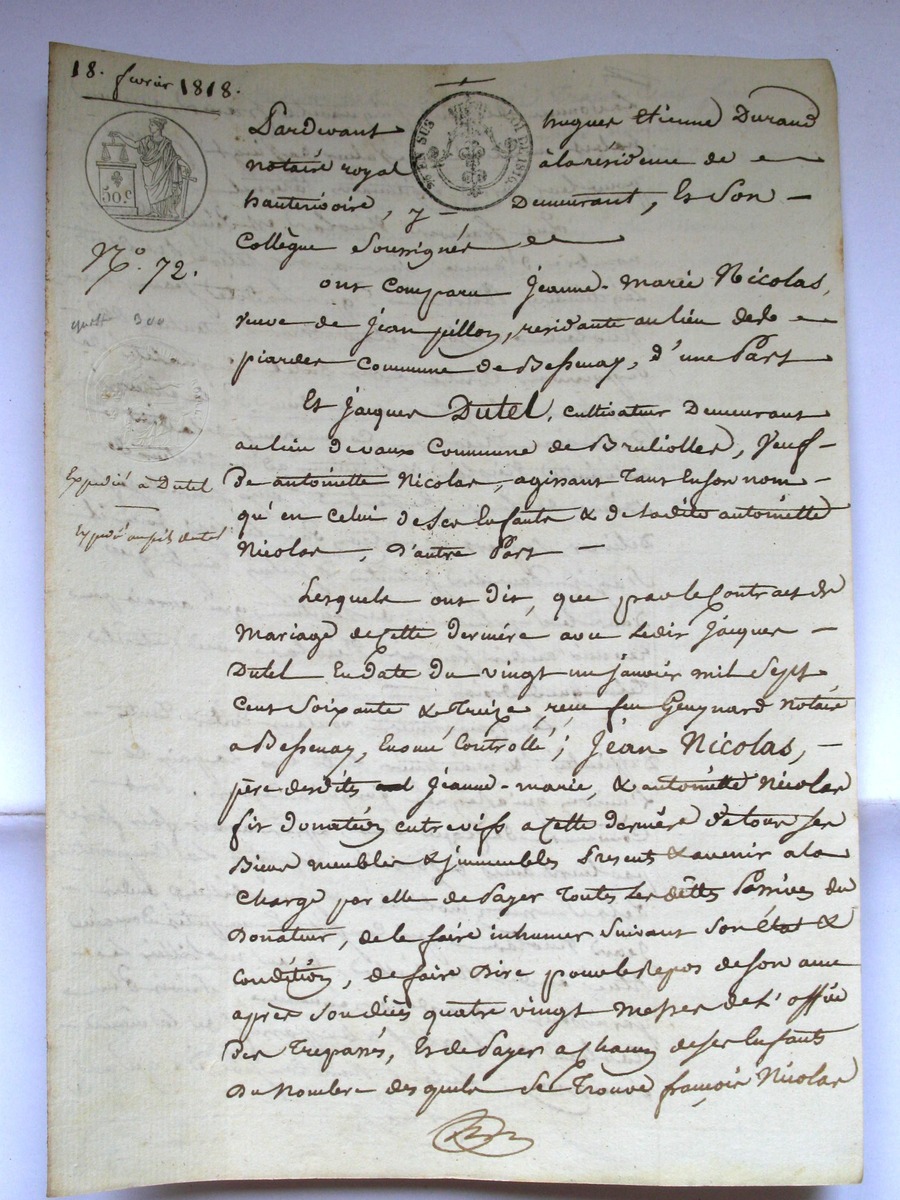 18. fevrier 1818.
50.c
EN SUS
LOI DE 1816.
Pardevant hugues Etienne Durand
notaire royal à la résidence de
hauterivoire, y Demeurant, Et Son
Collègue Soussignés
N.o 72.
ont Comparu Jeanne-marie Nicolas,
veuve de Jean pillon, residante au lieu de
piardes Commune de Bessenay, d'une Part
300
Et Jacques Dutel, cultivateur Demeurant
au lieu de vaux Commune de Brulliolles, Veuf
De antoinette Nicolas, agissant Tant En son nom
Expedié à Dutel
qu'en Celui de Ses Enfants & de ladite antoinette
Expedié au fils dutel
Nicolas, D'autre Part
Lesquels ont dit, que par le Contract de
Mariage de Cette dernière avec Ledit Jacques
Dutel En date du vingt un janvier mil Sept
Cent Soixante & Treize, reçu feu Guynard Notaire
a Bessenay, Controllé; Jean Nicolas,
père desdites Jeanne-marie, & antoinette Nicolas
fit donation entre vifs a Cette dernière de tous ses
Biens meubles & immeubles Presents & avenir a la
Charge par elle de Payer Toutes les dettes Passives du
Donateur, de le faire inhumer Suivant Son état &
Condition, de faire Dire pour le Repos de Son ame
après Son décès quatre vingt messes de L'office
Des Trepassés, Et de Payer a Chacun de ses Enfants
Du Nombre desquels Se Trouve françois Nicolas